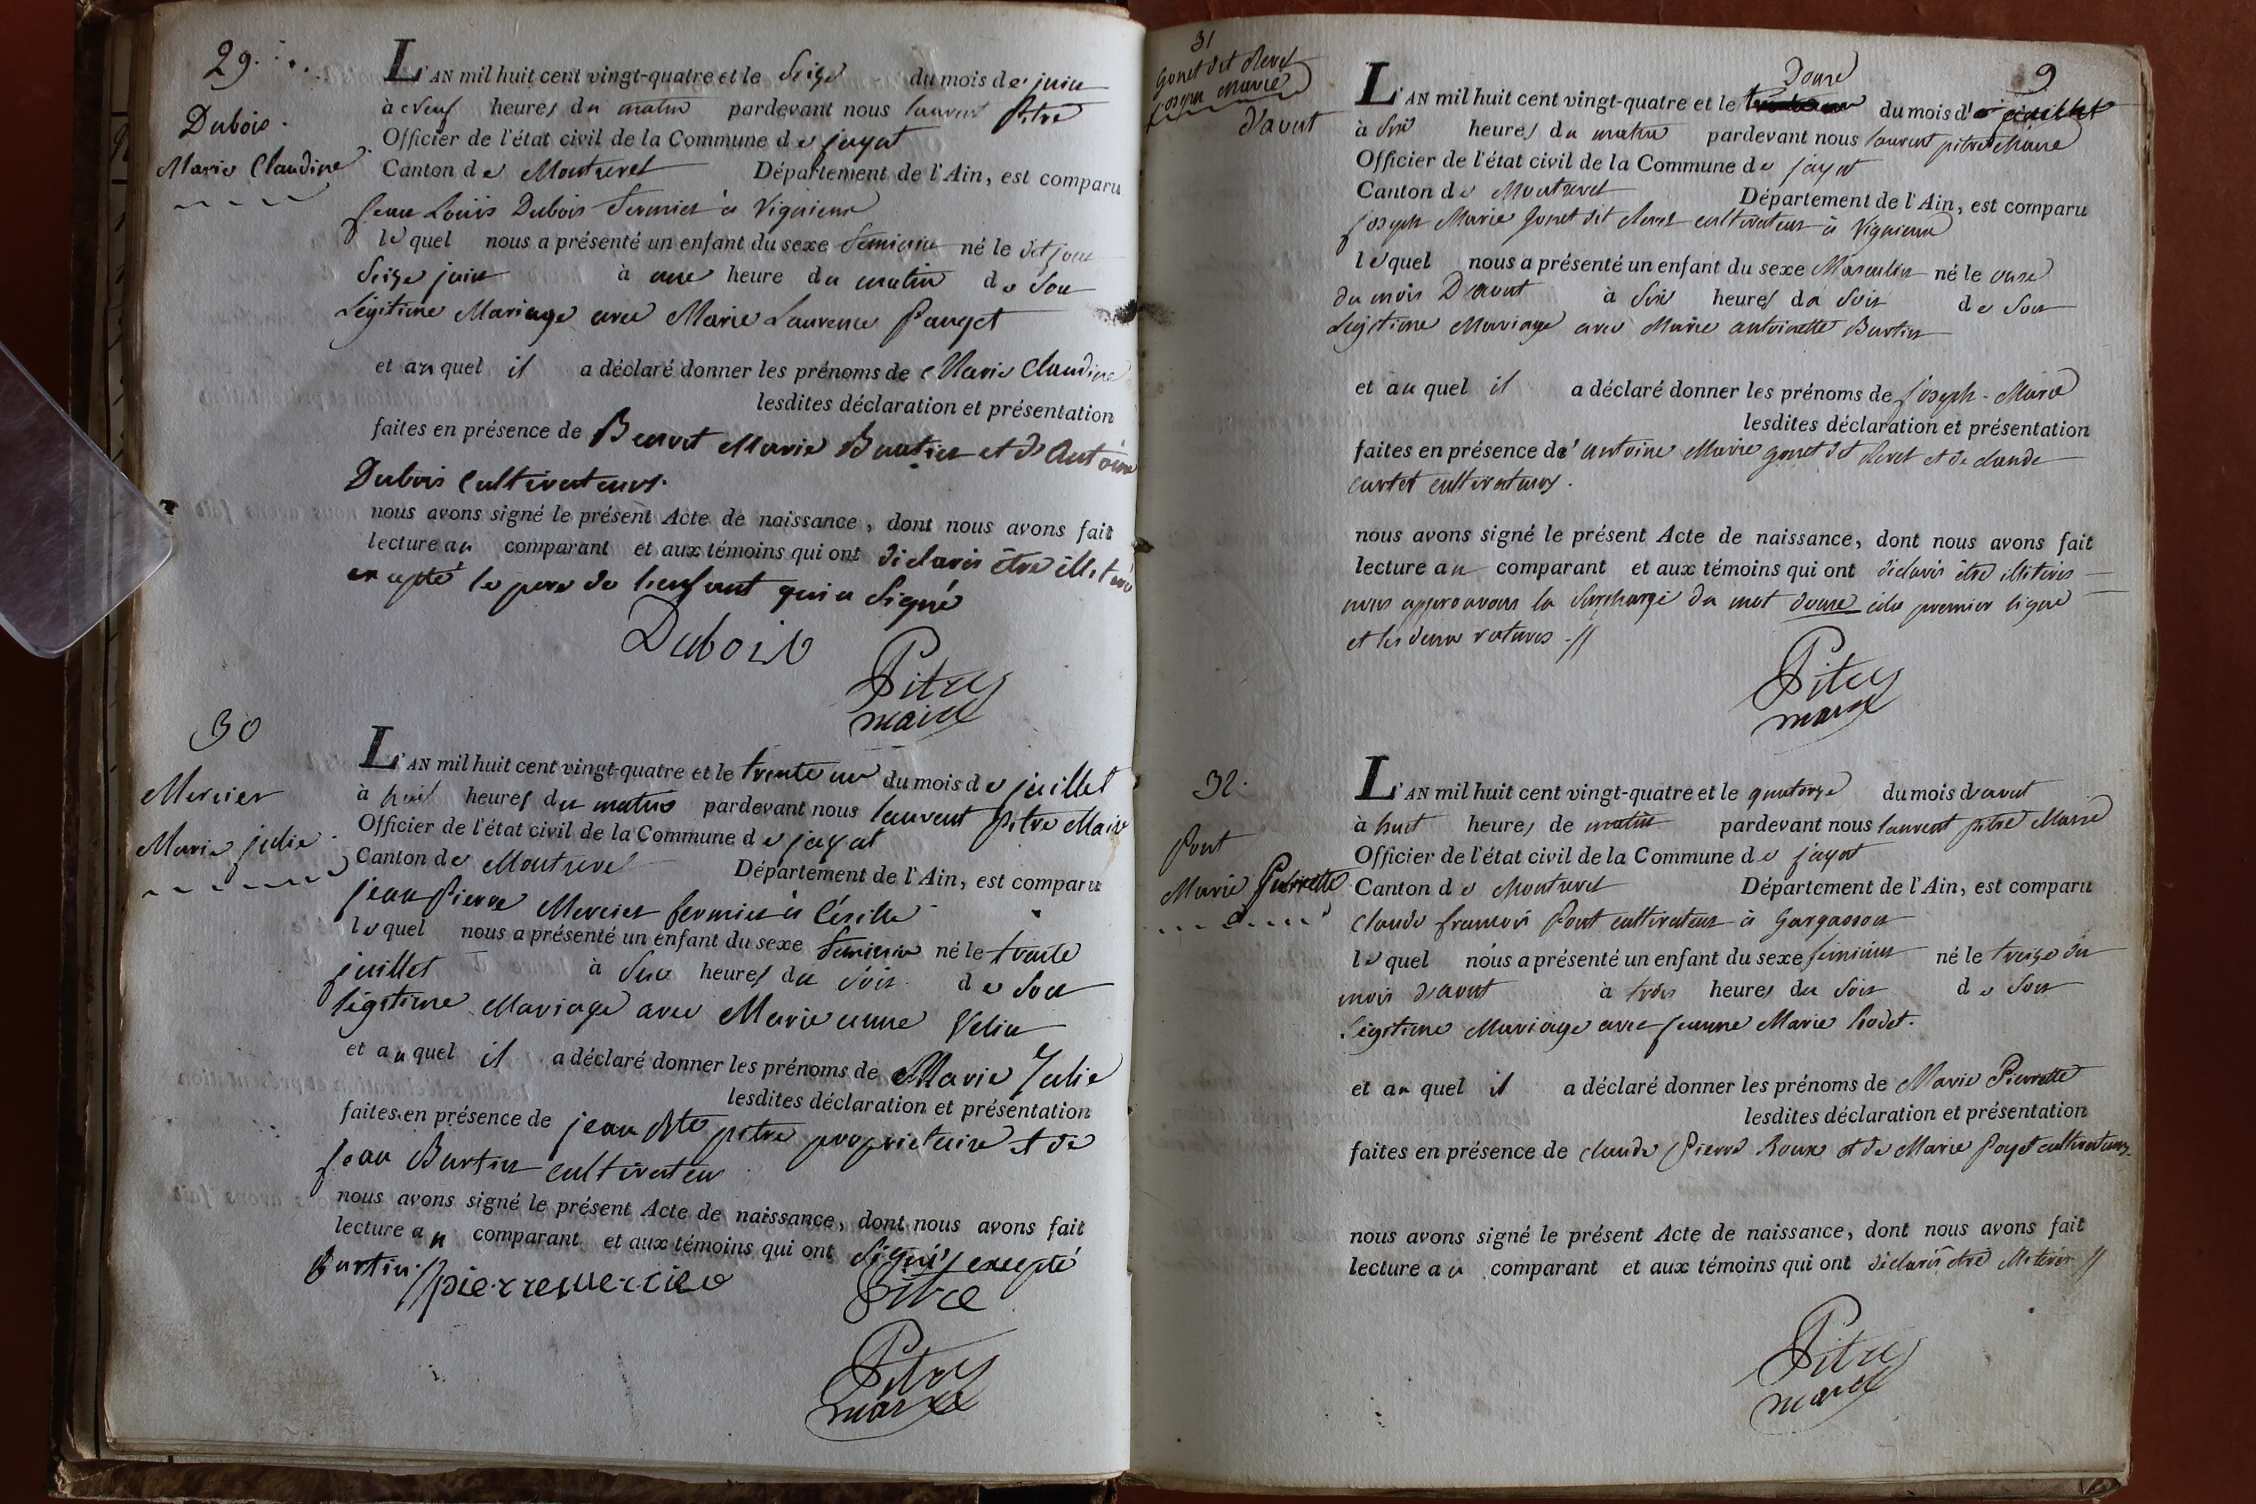 29.
Dubois.
Marie Claudine
L'AN mil huit cent vingt-quatre et le Seize du mois de juin
à neuf heures du matin pardevant nous laurent Pitre
Officier de l'état civil de la Commune de jayat
Canton de Montrevel Département de l'Ain, est comparu
jean Louis Dubois fermier à Vignieux
lequel nous a présenté un enfant du sexe feminin né le dit jour
Seize juin à une heure du matin de Son
Légitime Mariage avec Marie Laurence Pauget
et auquel il a déclaré donner les prénoms de Marie Claudine
lesdites déclaration et présentation
faites en présence de Benoit Marie Burtin et d'Antoine
Dubois Cultivateurs.
nous avons signé le présent Acte de naissance, dont nous avons fait
lecture au comparant et aux témoins qui ont déclarés être illitérés
excepté le pere de l'enfant qui a Signé
Dubois
Pitre
maire
30
Mercier
Marie julie
L'AN mil huit cent vingt-quatre et le trente un du mois de juillet
à huit heures du matin pardevant nous laurent Pitre Maire
Officier de l'état civil de la Commune de jayat
Canton de Montrevel Département de l'Ain, est comparu
jean Pierre Mercier fermier à
lequel nous a présenté un enfant du sexe feminin né le trente
juillet à heures du soir de Son
légitime Mariage avec Marie anne Velin
et auquel il a déclaré donner les prénoms de Marie Julie
lesdites déclaration et présentation
faites en présence de jean Bte pitre proprietaire et de
jean Burtin cultivateur
nous avons signé le présent Acte de naissance, dont nous avons fait
lecture au comparant et aux témoins qui ont Signés excepté
Burtin. pierre mercier Pitre
Pitre
maire
31
Gonet dit Revet
Joseph Marie
d'aout
9
douze
L'AN mil huit cent vingt-quatre et le du mois d' juillet
à Six heures du matin pardevant nous laurent pitre Maire
Officier de l'état civil de la Commune de jayat
Canton de Montrevel Département de l'Ain, est comparu
joseph Marie Gonet dit Revet cultivateur à Vignieux
lequel nous a présenté un enfant du sexe Masculin né le onze
du mois D'aout à Six heures du Soir de Son
Légitime Mariage avec Marie antoinette Burtin
et auquel il a déclaré donner les prénoms de joseph-Marie
lesdites déclaration et présentation
faites en présence de antoine Marie gonet dit Revet et de claude
curtet cultivateurs.
nous avons signé le présent Acte de naissance, dont nous avons fait
lecture au comparant et aux témoins qui ont déclarés être illitérés
nous approuvons la Surcharge du mot douze à la premier ligne
et les deux ratures.//
Pitre
maire
32.
Pont
Marie Pierrette
L'AN mil huit cent vingt-quatre et le quatorze du mois d'aout
à huit heures de matin pardevant nous laurent pitre Maire
Officier de l'état civil de la Commune de jayat
Canton de Montrevel Département de l'Ain, est comparu
Claude françois Pont cultivateur à Gargasson
lequel nous a présenté un enfant du sexe feminin né le treize du
mois d'aout à trois heures du Soir de Son
Légitime Mariage avec jeanne Marie Rodet.
et auquel il a déclaré donner les prénoms de Marie Pierrette
lesdites déclaration et présentation
faites en présence de claude Pierre Roux et de Marie Payet cultivateurs
nous avons signé le présent Acte de naissance, dont nous avons fait
lecture au comparant et aux témoins qui ont déclarés être illitérés //
Pitre
maire